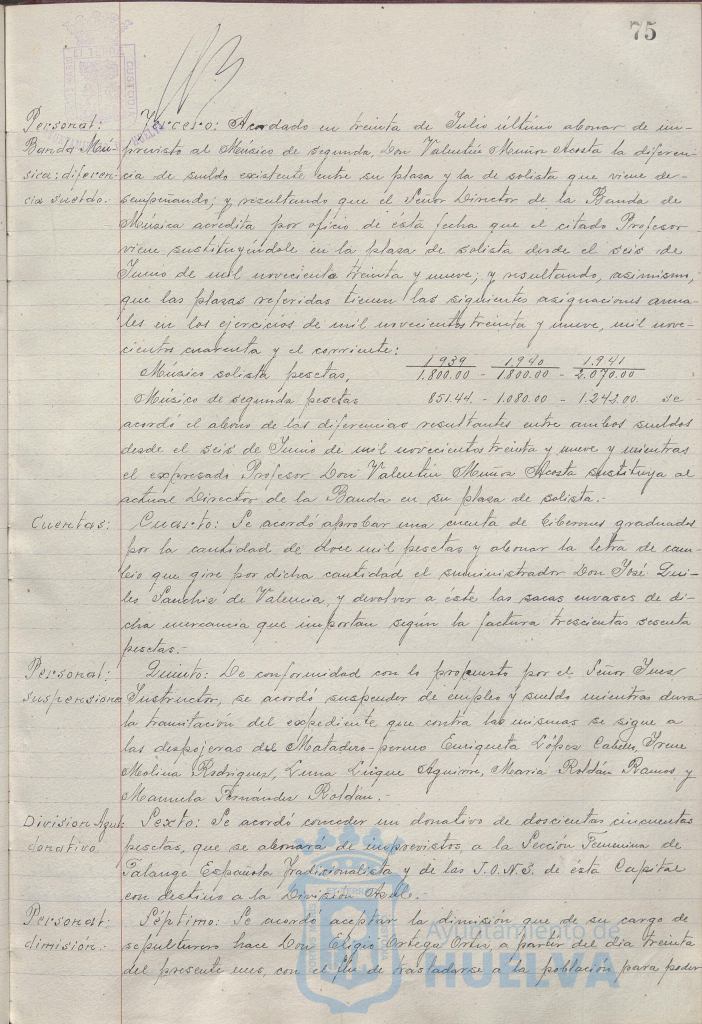 75
Personal: Tercero: Acordado en treinta de Julio último abonar de im-
Banda Mú- previsto al Músico de segunda, Don Valentín Muñoz Acosta la diferen-
sica: diferen- cia de sueldo existente entre su plaza y la de solista que viene de-
cia sueldo.- sempeñando; y, resultando que el Señor Director de la Banda de
Música acredita por oficio de ésta fecha que el citado Profesor
viene sustituyéndole en la plaza de solista desde el seis de
Junio de mil novecientos treinta y nueve; y resultando, asimismo,
que las plazas referidas tienen las siguientes asignaciones anua-
les en los ejercicios de mil novecientos treinta y nueve, mil nove-
cientos cuarenta y el corriente:
1939 - 1940 - 1.941
Músico solista pesetas, 1.800.00 - 1.800.00 - 2.070.00
Músico de segunda pesetas 851.44. - 1.080.00 - 1.242.00. se
acordó el abono de las diferencias resultantes entre ambos sueldos
desde el seis de Junio de mil novecientos treinta y nueve y mientras
el expresado Profesor Don Valentín Muñoz Acosta sustituya al
actual Director de la Banda en su plaza de solista.-
Cuentas: Cuarto: Se acordó aprobar una cuenta de graduados
por la cantidad de doce mil pesetas y abonar la letra de cam-
bio que gire por dicha cantidad el suministrador Don José
Sanchiz de Valencia, y devolver a éste las sacas envases de di-
cha mercancía que importan según la factura trescientas sesenta
pesetas.-
Personal: Quinto: De conformidad con lo propuesto por el Señor Juez
suspensiones Instructor, se acordó suspender de empleo y sueldo mientras dura
la tramitación del expediente que contra las mismas se sigue a
las despojeras del Matadero Enriqueta López Irene
Molina Rodríguez, Luque Aguirre, María Roldán Ramos y
Manuela Fernández Roldán.-
División Azul: Sexto: Se acordó conceder un donativo de doscientas cincuenta
donativo pesetas, que se abonará de imprevistos, a la Sección Femenina de
Falange Española Tradicionalista y de las J.O.N.S. de ésta Capital
con destino a la División Azul.-
Personal: Séptimo: Se acordó aceptar la dimisión que de su cargo de
dimisión.- sepulturero hace Don Eligio Ortega Ortiz, a partir del día treinta
del presente mes, con el fin de trasladarse a la población para poder
Ayuntamiento de
HUELVA